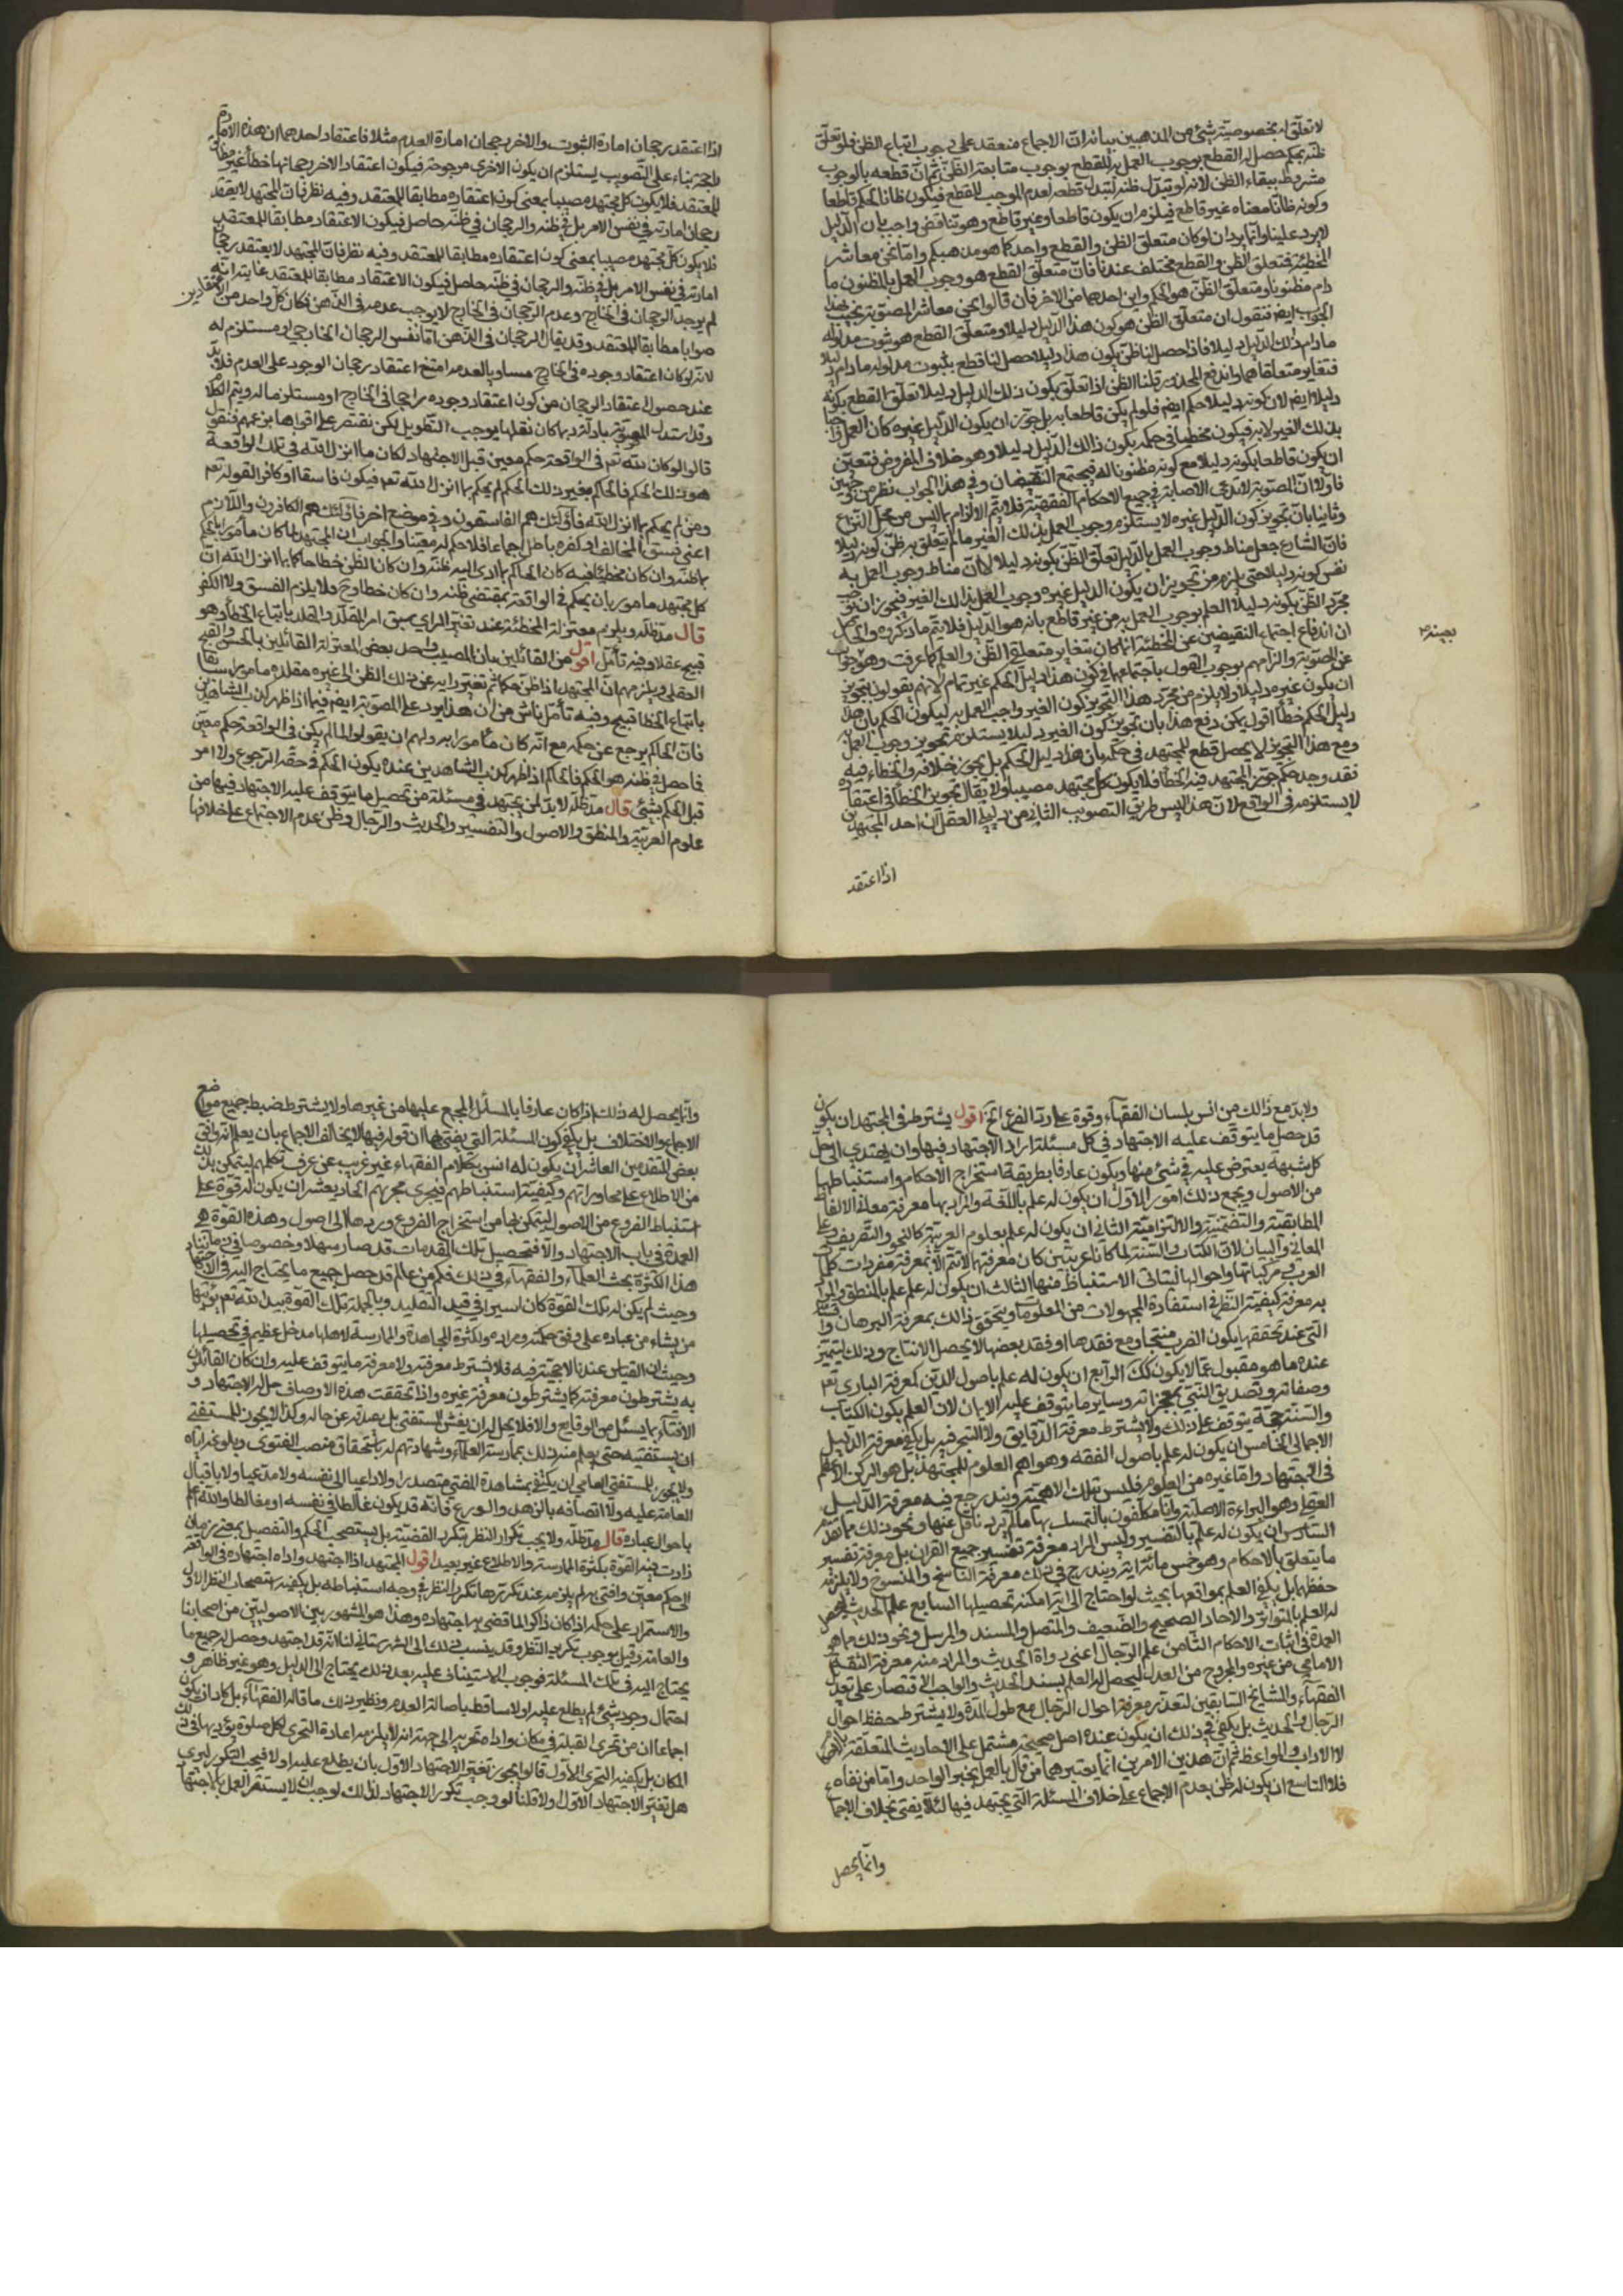 لا تعلق له بخصوصية شئ من المذهبين بيانه ان الاجماع منعقد على وجوب اتباع الظن فلو تعلق
ظنه بحكم حصل له القطع بوجوب العمل به للقطع بوجوب متابعة الظن ثم ان قطعه بالوجوب
مشروط ببقاء الظن لانه لو تبدل ظنه لتبدل قطعه لعدم الموجب للقطع فيكون ظانا للحكم قاطعا
وكونه ظانا معناه غير قاطع فيلزم ان يكون قاطعا وغير قاطع وهو تناقض واجيب بان الدليل
لا يرد علينا وانما يرد ان لو كان متعلق الظن والقطع واحد كما هو مذهبكم واما نحن معاشر
المخطئة فمتعلق الظن والقطع مختلف عندنا فان متعلق القطع هو وجوب العمل بالمظنون ما
دام مظنونا ومتعلق الظن هو الحكم واين احدهما من الاخر فان قالوا نحن معاشر المصوبة نجيب بهذا
الجواب ايضا فنقول ان متعلق الظن هو كون هذا الدليل دليلا ومتعلق القطع هو ثبوت مدلوله
ما دام ذلك الدليل دليلا فاذا حصل الظن بكون هذا دليلا حصل لنا قطع بثبوت مدلوله ما دام دليلا
فتغاير متعلقاهما واندفع المحذور قلنا الظن اذا تعلق بكون ذلك الدليل دليلا تعلق القطع بكونه
دليلا ايضا لان كونه دليلا حكم ايضا فلو لم يكن قاطعا به بل جوز ان يكون الدليل غيره كان العمل
بذلك الغير لا به فيكون مخطيا في حكمه بكون ذالك الدليل دليلا وهو خلاف المفروض فتعين
ان يكون قاطعا بكونه دليلا مع كونه مظنونا له فيجتمع النقيضان وفي هذا الجواب نظر من وجهين
فاولا ان المصوبة لا تدعى الاصابة في جميع الاحكام الفقهية فلا يتم الالزام بما ليس من محل النزاع
وثانيا بان تجويز كون الدليل غيره لا يستلزم وجوب العمل بذلك الغير ما لم يتعلق به ظن كونه دليلا
فان الشارع جعل مناط وجوب العمل بالدليل تعلق الظن بكونه دليلا لا ان مناط وجوب العمل به
نفس كونه دليلا حتى يلزم من تجويز ان يكون الدليل غيره وجوب العمل بذالك الغير فيجوز ان
مجرد الظن بكونه دليلا العلم بوجوب العمل به من غير قاطع بانه هو الدليل فلا يتم ما ذكروه والحاصل
ان اندفاع اجتماع النقيضين عن المخطئة انما كان بتغاير متعلقى الظن والعلم كما عرفت وهو جواب
عن المصوبة والزامهم بوجوب القول باجتماعهما في كون هذا دليل الحكم غير تمام لانهم يقولون بتجويز
ان يكون غيره دليلا ولا يلزم من مجرد هذا التجويز كون الغير واجب العمل به ليكون الحكم بان هذا
دليل الحكم خطأ اقول يمكن دفع هذا بان تجويز كون الغير دليلا يستلزم تجويز وجوب العمل به
ومع هذا التجويز لا يحصل قطع للمجتهد في حكمه بان هذا دليل الحكم بل يجوز خلافه والخطاء فيه
فقد وجد حكم جوز المجتهد فيه الخطأ فلا يكون كل مجتهد مصيبا ولا يقال تجويز الخطأ في اعتقاده
لا يستلزمه في الواقع لان هذا ليس طريق التصويب الثاني من دليل العقل ان احد المجتهدين
اذا اعتقد
اذا اعتقد رجحان امارة الثبوت والاخر رجحان امارة العدم مثلا فاعتقاد احدهما ان هذه الامارة
راجحة بناء على التصويب يستلزم ان يكون الاخرى مرجوحة فيكون اعتقاد الاخر رجحانها خطأ غير مطابق
للمعتقد فلا يكون كل مجتهد مصيبا بمعنى كون اعتقاده مطابقا للمعتقد وفيه نظر فان المجتهد لا يعتقد
رجحان امارته في نفس الامر بل في ظنه والرجحان في ظنه حاصل فيكون الاعتقاد مطابقا للمعتقد
فلا يكون كل مجتهد مصيبا بمعنى كون اعتقاده مطابقا للمعتقد وفيه نظر فان المجتهد لا يعتقد رجحان
امارته في نفس الامر بل في ظنه والرجحان في ظنه حاصل فيكون الاعتقاد مطابقا للمعتقد غايته انه
لم يوجد الرجحان في الخارج وعدم الرجحان في الخارج لا يوجب عدمه في الذهن فكان كل واحد من الاعتقادين
صوابا مطابقا للمعتقد وقد يقال الرجحان في الذهن اما نفس الرجحان الخارجي او مستلزم له
لانه لو كان اعتقاد وجوده في الخارج مساويا لعدمه امتنع اعتقاد رجحان الوجود على العدم فلا بد
عند حصول اعتقاد الرجحان من كون اعتقاد وجوده راجحا في الخارج او مستلزما له ويتم الكلام
وقد استدل المصوبة بادلة ربما كان نقلها يوجب التطويل لكن نقتصر على اقواها بزعمهم فنقول
قالوا لو كان لله تعم في الواقعة حكم معين قبل الاجتهاد لكان ما انزل الله في تلك الواقعة
هو ذلك الحكم فالحاكم بغير ذلك الحكم لم يحكم بما انزل الله تعم فيكون فاسقا او كافرا لقوله تعم
ومن لم يحكم بما انزل الله فاولئك هم الفاسقون وفي موضع اخر فاولئك هم الكافرون واللازم
اعنى فسق المخالف او كفره باطل اجماعا فلا حكم له معينا والجواب ان المجتهد لما كان مأمورا بالحكم
بما ظنه وان كان مخطئا فيه كان الحاكم بما ادى اليه ظنه وان كان الظن خطأ حاكما بما انزل الله ان
كل مجتهد مامور بان يحكم في الواقعة بمقتضى ظنه وان كان خطا وح فلا يلزم الفسق ولا الكفر
قال مدظله ويلزم معتزلة المخطئة عند تغير الراى سبق امر المقلد والمقلد باتباع الخطأ وهو
قبيح عقلا وفيه تأمل اقول من القائلين بان المصيب واحد بعض المعتزلة القائلين بالحسن والقبح
العقلي ويلزمهم ان المجتهد اذا ظن حكما ثم تغير رايه عن ذلك الظن الى غيره مقلده مامورا سابقا
باتباع الخطا قبيح وفيه تأمل ناش من ان هذا يرد على المصوبة ايضا فيما اذا ظهر كذب الشاهدين
فان الحاكم يرجع عن حكمه مع انه كان مأمورا به ولهم ان يقولوا لما لم يكن في الواقعة حكم معين
فما حصل في ظنه هو الحكم فالحاكم اذا ظهر كذب الشاهدين عنده يكون الحكم في حقه الرجوع ولا امر
قبل الحكم بشئ قال مدظله لا بد لمن يجتهد في مسئلة من تحصيل ما يتوقف عليه الاجتهاد فيها من
علوم العربية والمنطق والاصول والتفسير والحديث والرجال وظن عدم الاجماع على خلافها
ولا بد مع ذالك من انس بلسان الفقهاء وقوة على رد الفرع الخ اقول يشترط في المجتهد ان يكون
قد حصل ما يتوقف عليه الاجتهاد في كل مسئلة اراد الاجتهاد فيها وان يهتدى الى حل
كل شبهة يعترض عليه في شئ منها ويكون عارفا بطريقة استخراج الاحكام واستنباطها
من الاصول ويجمع ذلك امور الاول ان يكون له علم باللغة والمراد بها معرفة معاني الالفاظ
المطابقية والتضمنية والالتزامية الثاني ان يكون له علم بعلوم العربية كالنحو والتصريف وعلم
المعاني والبيان لان الكتاب والسنة لما كانا عربيين كان معرفتهما لا تتم الا بمعرفة مفردات كلام
العرب ومركباتها واحوالها ليتاتى الاستنباط منها الثالث ان يكون له علم بالمنطق والمراد
به معرفة كيفية النظر في استفادة المجهولات من المعلومات ويتحقق ذالك بمعرفة البرهان
التى عند تحققها يكون الضرب منتجا ومع فقدها او فقد بعضها لا يحصل الانتاج وذلك ليتميز
عنده ما هو مقبول عما لا يكون كك الرابع ان يكون له علم باصول الدين كمعرفة الباري تعم
وصفاته وتصديق النبي بمعجزاته وساير ما يتوقف عليه الايمان لان العلم بكون الكتاب
والسنة حجة يتوقف على ذلك ولا يشترط معرفة الدقايق ولا التبحر فيه بل يكفي معرفة الدليل
الاجمالي الخامس ان يكون له علم باصول الفقه وهو اهم العلوم للمجتهد بل هو الركن الاعظم
في الاجتهاد واما غيره من العلوم فليس بتلك الاهمية ويندرج فيه معرفة الدليل
العقلي وهو البراءة الاصلية وانا مكلفون بالتمسك بها ما لم يرد ناقل عنها ونحو ذلك مما تقدم
السادس ان يكون له علم بالتفسير وليس المراد معرفة تفسير جميع القران بل معرفة تفسير
ما يتعلق بالاحكام وهو خمس مائة اية ويندرج في ذلك معرفة الناسخ والمنسوخ ولا يلزمه
حفظها بل يكفي العلم بمواقعها بحيث لو احتاج الى اية امكنه تحصيلها السابع علم الحديث
له العلم بالمتواتر والاحاد الصحيح والضعيف والمتصل والمسند والمرسل ونحو ذلك مما هو
العمدة في اثبات الاحكام الثامن علم الرجال اعنى رواة الحديث والمراد منه معرفة الثقة
الامامي من غيره والمجروح من العدل ليحصل له العلم بسند الحديث والواجب الاقتصار على تعديل
الفقهاء والمشايخ السابقين لتعذر معرفة احوال الرجال مع طول المدة ولا يشترط حفظ احوال
الرجال والحديث بل يكفي في ذلك ان يكون عنده اصل صحيح مشتمل على الاحاديث المتعلقة
لا الاداب والمواعظ ثم ان هذين الامرين انما يعتبرهما من قال بالعمل بخبر الواحد واما من نفاه
فلا التاسع ان يكون له ظن بعدم الاجماع على خلاف المسئلة التى يجتهد فيها لئلا يفتى بخلاف الاجماع
وانما يحصل
وانما يحصل له ذلك اذا كان عارفا بالمسائل المجمع عليها من غيرها ولا يشترط ضبط جميع مواضع
الاجماع والاختلاف بل يكفي كون المسئلة التى يفتى بها ان قوله فيها لا يخالف الاجماع بان يعلم انه وافق
بعض المتقدمين العاشر ان يكون له انس بكلام الفقهاء غير غريب عن عرف تكلمهم ليتمكن بذلك
من الاطلاع على محاوراتهم وكيفية استنباطهم فيجرى مجريهم الحاديعشر ان يكون له قوة على
استنباط الفروع من الاصول ليتمكن بها من استخراج الفروع وردها الى اصول وهذه القوة هى
العمدة في باب الاجتهاد والا فتحصيل تلك المقدمات قد صار سهلا وخصوصا في زماننا
هذا لكثرة بحث العلماء والفقهاء في ذلك فكم من عالم قد حصل جميع ما يحتاج اليه في الاجتهاد
وحيث لم يكن له تلك القوة كان اسيرا في قيد التقليد وبالجملة تلك القوة بيد الله تعم يؤتيها
من يشاء من عباده على وفق حكمته ومراده ولكثرة المجاهدة والممارسة لاهلها مدخل عظيم في تحصيلها
وحيث ان القياس عندنا لا حجية فيه فلا يشترط معرفته ولا معرفة ما يتوقف عليه وان كان القائلون
به يشترطون معرفته كما يشترطون معرفة غيره واذا تحققت هذه الاوصاف حل له الاجتهاد و
الافتاء بما يسئل من الوقايع والا فلا يحل له ان يغش المستفتى بل يصدقه عن حاله وكذا لا يجوز للمستفتى
ان يستفتيه حتى يعلم منه ذلك بممارسة العلماء وشهادتهم له باستحقاق منصب الفتوى وبلوغه اياه
ولا يجوز للمستفتى العامي ان يكتفي بمشاهدة المفتي متصدرا ولا داعيا الى نفسه ولا مدعيا ولا باقبال
العامة عليه ولا اتصافه بالزهد والورع فانه قد يكون غالطا في نفسه او مغالطا والله اعلم
باحوال عباده قال مدظله ولا يجب تكرار النظر بتكرر القضية بل يستصحب الحكم والتفصيل بمعنى زمان
زادت فيه القوة بكثرة الممارسة والاطلاع غير بعيد اقول المجتهد اذا اجتهد واداه اجتهاده في الواقعة
الى حكم معين وافتى به لم يلزمه عند تكررها تكرار النظر في وجه استنباطه بل يكفيه استصحاب النظر الاول
والاستمرار على حكمه اذا كان ذاكرا لما قضى به اجتهاده وهذا هو المشهور بين الاصوليين من اصحابنا
والعامة وقيل بوجوب تكرير النظر وقد ينسب ذلك الى الشهرستاني لنا انه قد اجتهد وحصل له جميع ما
يحتاج اليه في تلك المسئلة فوجوب الاستيناف عليه بعد ذلك يحتاج الى الدليل وهو غير ظاهر و
احتمال وجود شئ لم يطلع عليه اولا ساقط باصالة العدم ونظير ذلك ما قاله الفقهاء بل كاد ان يكون
اجماعا ان من تحرى القبلة في مكان واداه تحريه الى جهة انه لا يلزمه اعادة التحرى لكل صلوة يؤديها في ذلك
المكان بل يكفيه التحرى الاول قالوا يجوز تغير الاجتهاد الاول بان يطلع عليه اولا فيجب التكرير ليرى
هل تغير الاجتهاد الاول ولا قلنا لو وجب تكرير الاجتهاد لذلك لوجب ان لا يستقر العمل باجتهاد